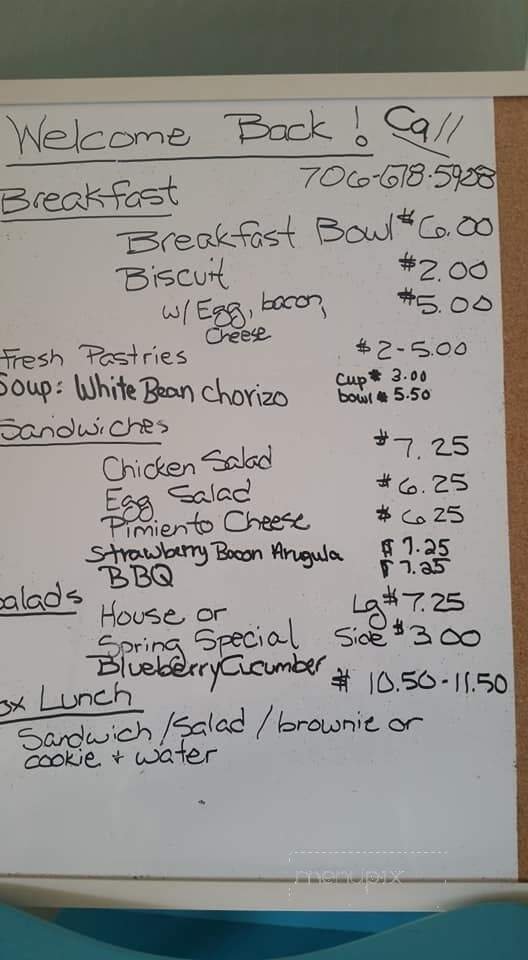 Welcome Back! Call
706-678-5928
Breakfast
Breakfast Bowl $6.00
Biscuit $2.00
w/ Egg, bacon, $5.00
Cheese
Fresh Pastries $2-5.00
Soup: White Bean Chorizo cup $3.00
bowl $5.50
Sandwiches
Chicken Salad $7.25
Egg Salad $6.25
Pimiento Cheese $6.25
Strawberry Bacon Arugula $7.25
BBQ $7.25
alads
House or Lg $7.25
Spring Special Side $3.00
Blueberry Cucumber
ox Lunch $10.50-11.50
Sandwich/Salad/brownie or
cookie + water
menupix